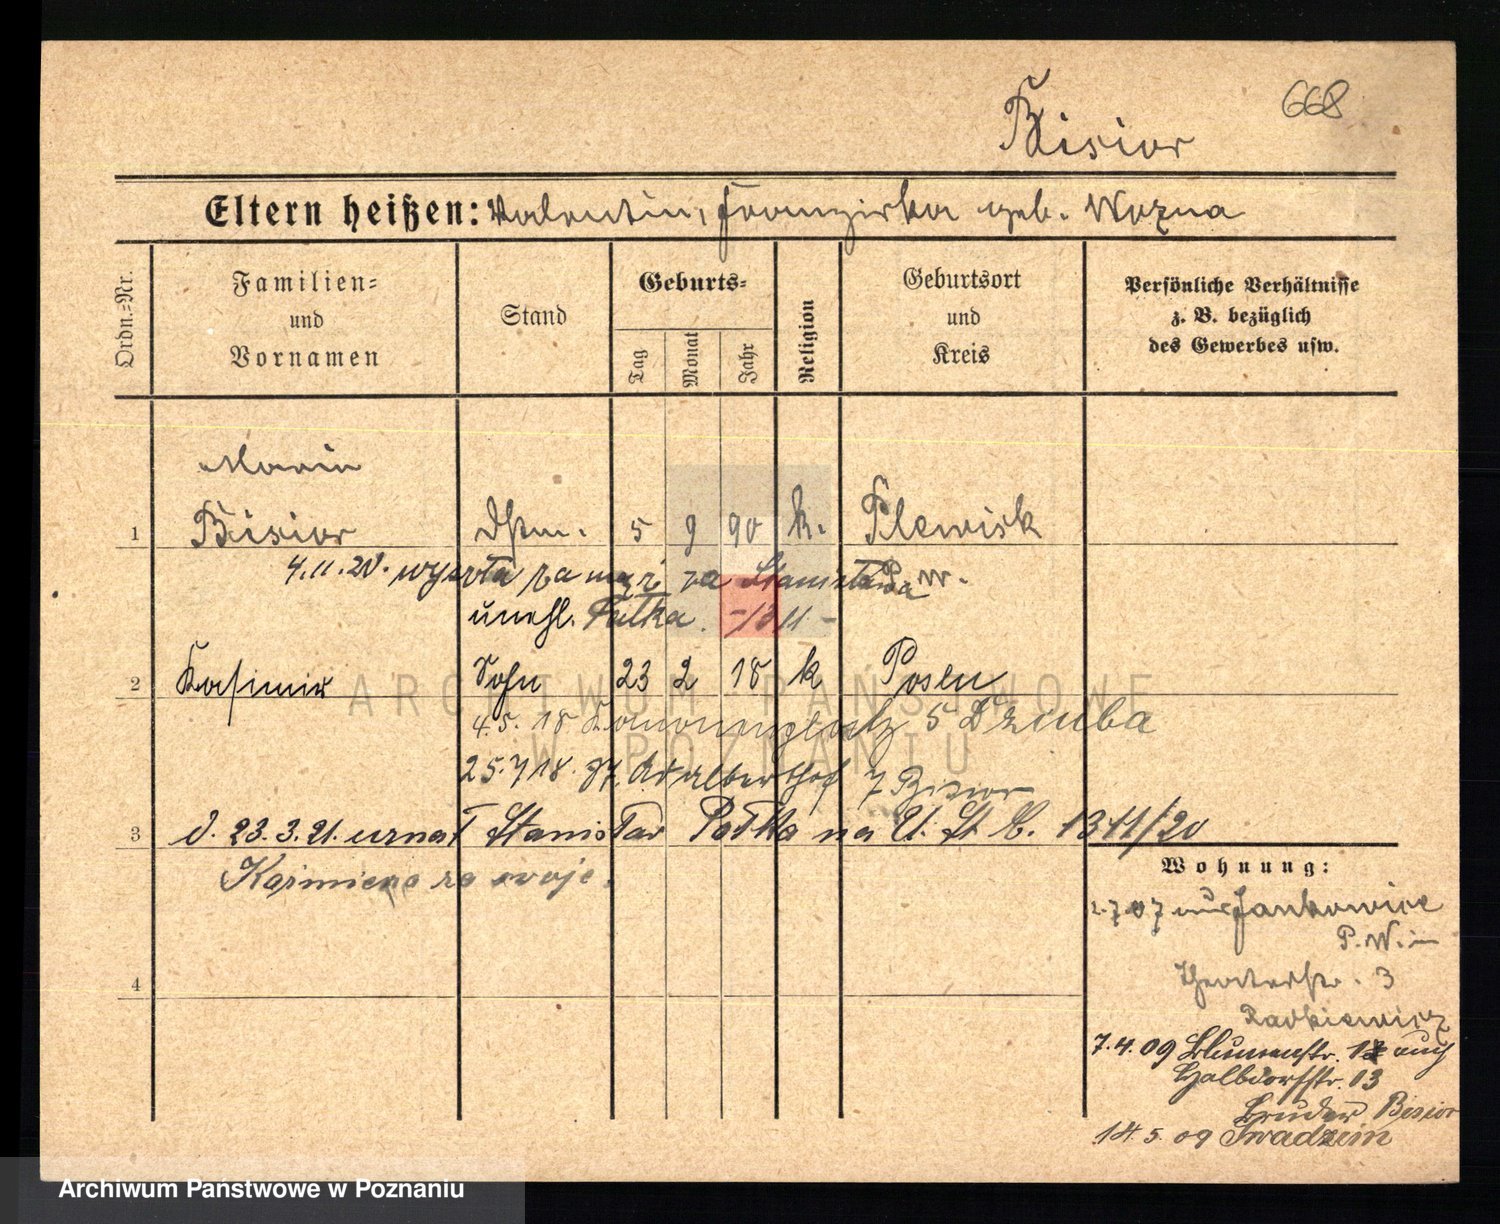 668
Bisior
Eltern heißen: Valentin, Franziska geb. Wozna
Ordn.=Nr.
Familien= und Vornamen
Stand
Geburts=
Tag
Monat
Jahr
Religion
Geburtsort und Kreis
Persönliche Verhältnisse z. B. bezüglich des Gewerbes usw.
Maria
1 Bisior Dstm. 5 9 90 k. Plewisk
4.11.20. wyszła za mąż za Stanisława P. W.
unehl. Patka. -1311-
2 Kasimir Sohn 23 2 18 k Posen
4.5.18 5 Dziuba
25.7.18. Adalberthof 7 Bisior
3 d. 23.3.21. uznał Stanisław Patka na U. St. C. 1311/20
Kaźmierza za swoje.
Wohnung:
2.7.07 aus Jankowice
P. W. in
Theaterstr. 3
Radkiewicz
7.4.09 Blumenstr. auch
Halbdorfstr. 13
Bruder Bisior
14.5.09 Swadzim
4
ARCHIWUM PAŃSTWOWE
W POZNANIU
Archiwum Państwowe w Poznaniu